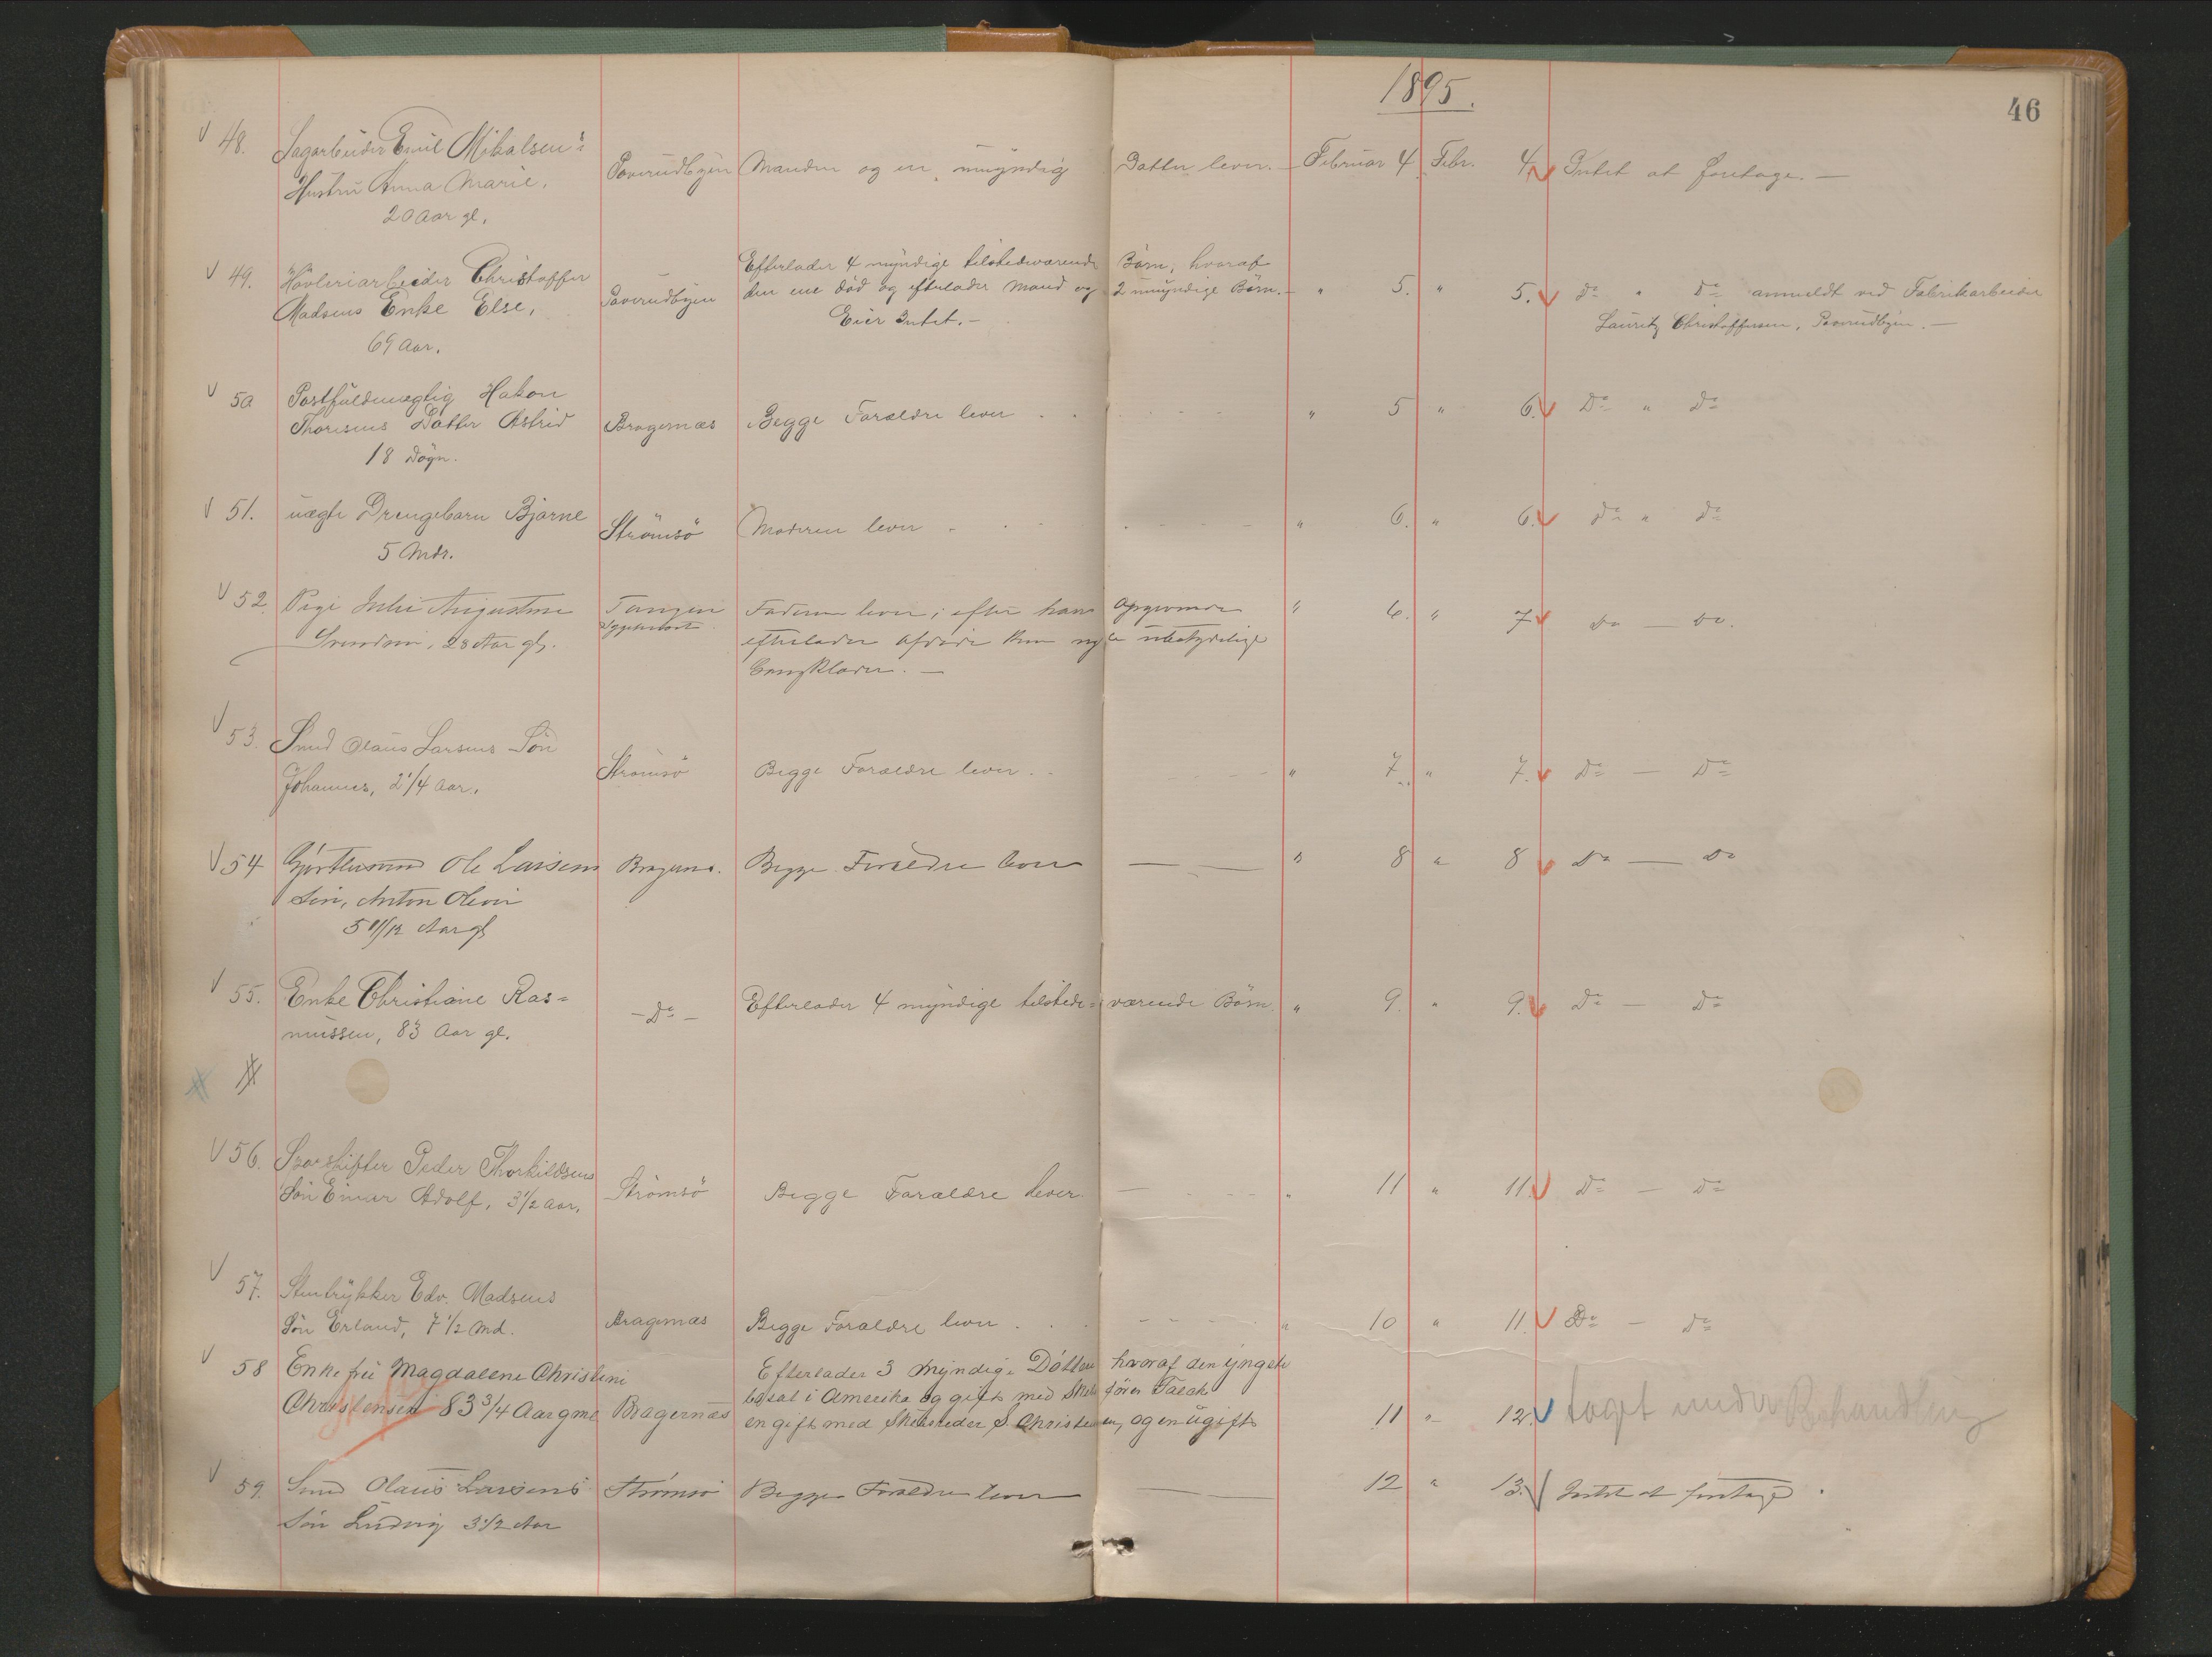 1895.
46
48. Sagarbeider Emil Mikalsen's Poverudbyen Manden og en umyndig Datter lever. — Februar 4 Febr. 4. Intet at foretage. —
Hustru Anna Marie,
20 Aar gl.
49. Høvleriarbeider Christoffer Poverudbyen Efterlader 4 myndige tilstedeværende Børn, hvoraf
Madsens Enke Else, den ene død og efterlader Mand og 2 umyndige Børn. — " 5. " 5. Do " Do anmeldt ved Fabrikarbeider
69 Aar. Eier Intet. — Lauritz Christoffersen, Poverudbyen. —
50 Postfuldmægtig Hakon
Thoresens Datter Astrid Bragernæs Begge Forældre lever " 5 " 6. Do " Do
18 Døgn.
51. uægte Drengebarn Bjarne Strømsø Moderen lever " 6. " 6. Do " Do
5 Mdr.
52. Pige Julie Augustine Tangen Faderen lever; efter hans Opgivende " 6. " 7 Do — Do.
28 Aar gl. efterlader Afdøde kun nogle ubetydelige
Gangklæder. —
53. Smed Olaus Larsens Søn Strømsø Begge Forældre lever. " 7. " 7. Do — Do
Johannes, 2 1/4 Aar.
54 Ole Larsens Bragernæs. Begge Forældre lever — " 8 " 8 Do — Do
Søn, Anton
5 11/12 Aar gl
55. Enke Christiane Ras= — Do — Efterlader 4 myndige tilstede= værende Børn. " 9. " 9. Do — Do
mussen, 83 Aar gl.
56. Sporskifter Peder Thorkildsens Strømsø Begge Forældre lever. — " 11 " 11. Do — Do
Søn Einar Adolf, 3 1/2 Aar.
57. Stentrykker Edv. Madsens
Søn Erland, 7 1/2 Md. Bragernæs Begge Forældre lever " 10 " 11. Do — Do
58 Enkefru Magdalene Christine Efterlader 3 Myndige Døttre hvoraf den yngste
Christensen 83 3/4 Aar gml Bragernæs bosat i Amerika og gift med Skibsfører
en gift med Skibsreder S Christensen, og en ugift 11 " 12. taget under Behandling
59. Smed Olaus Larsens Strømsø Begge Forældre lever — 12 " 13. Intet at foretage.
Søn Ludvig 3 1/2 Aar